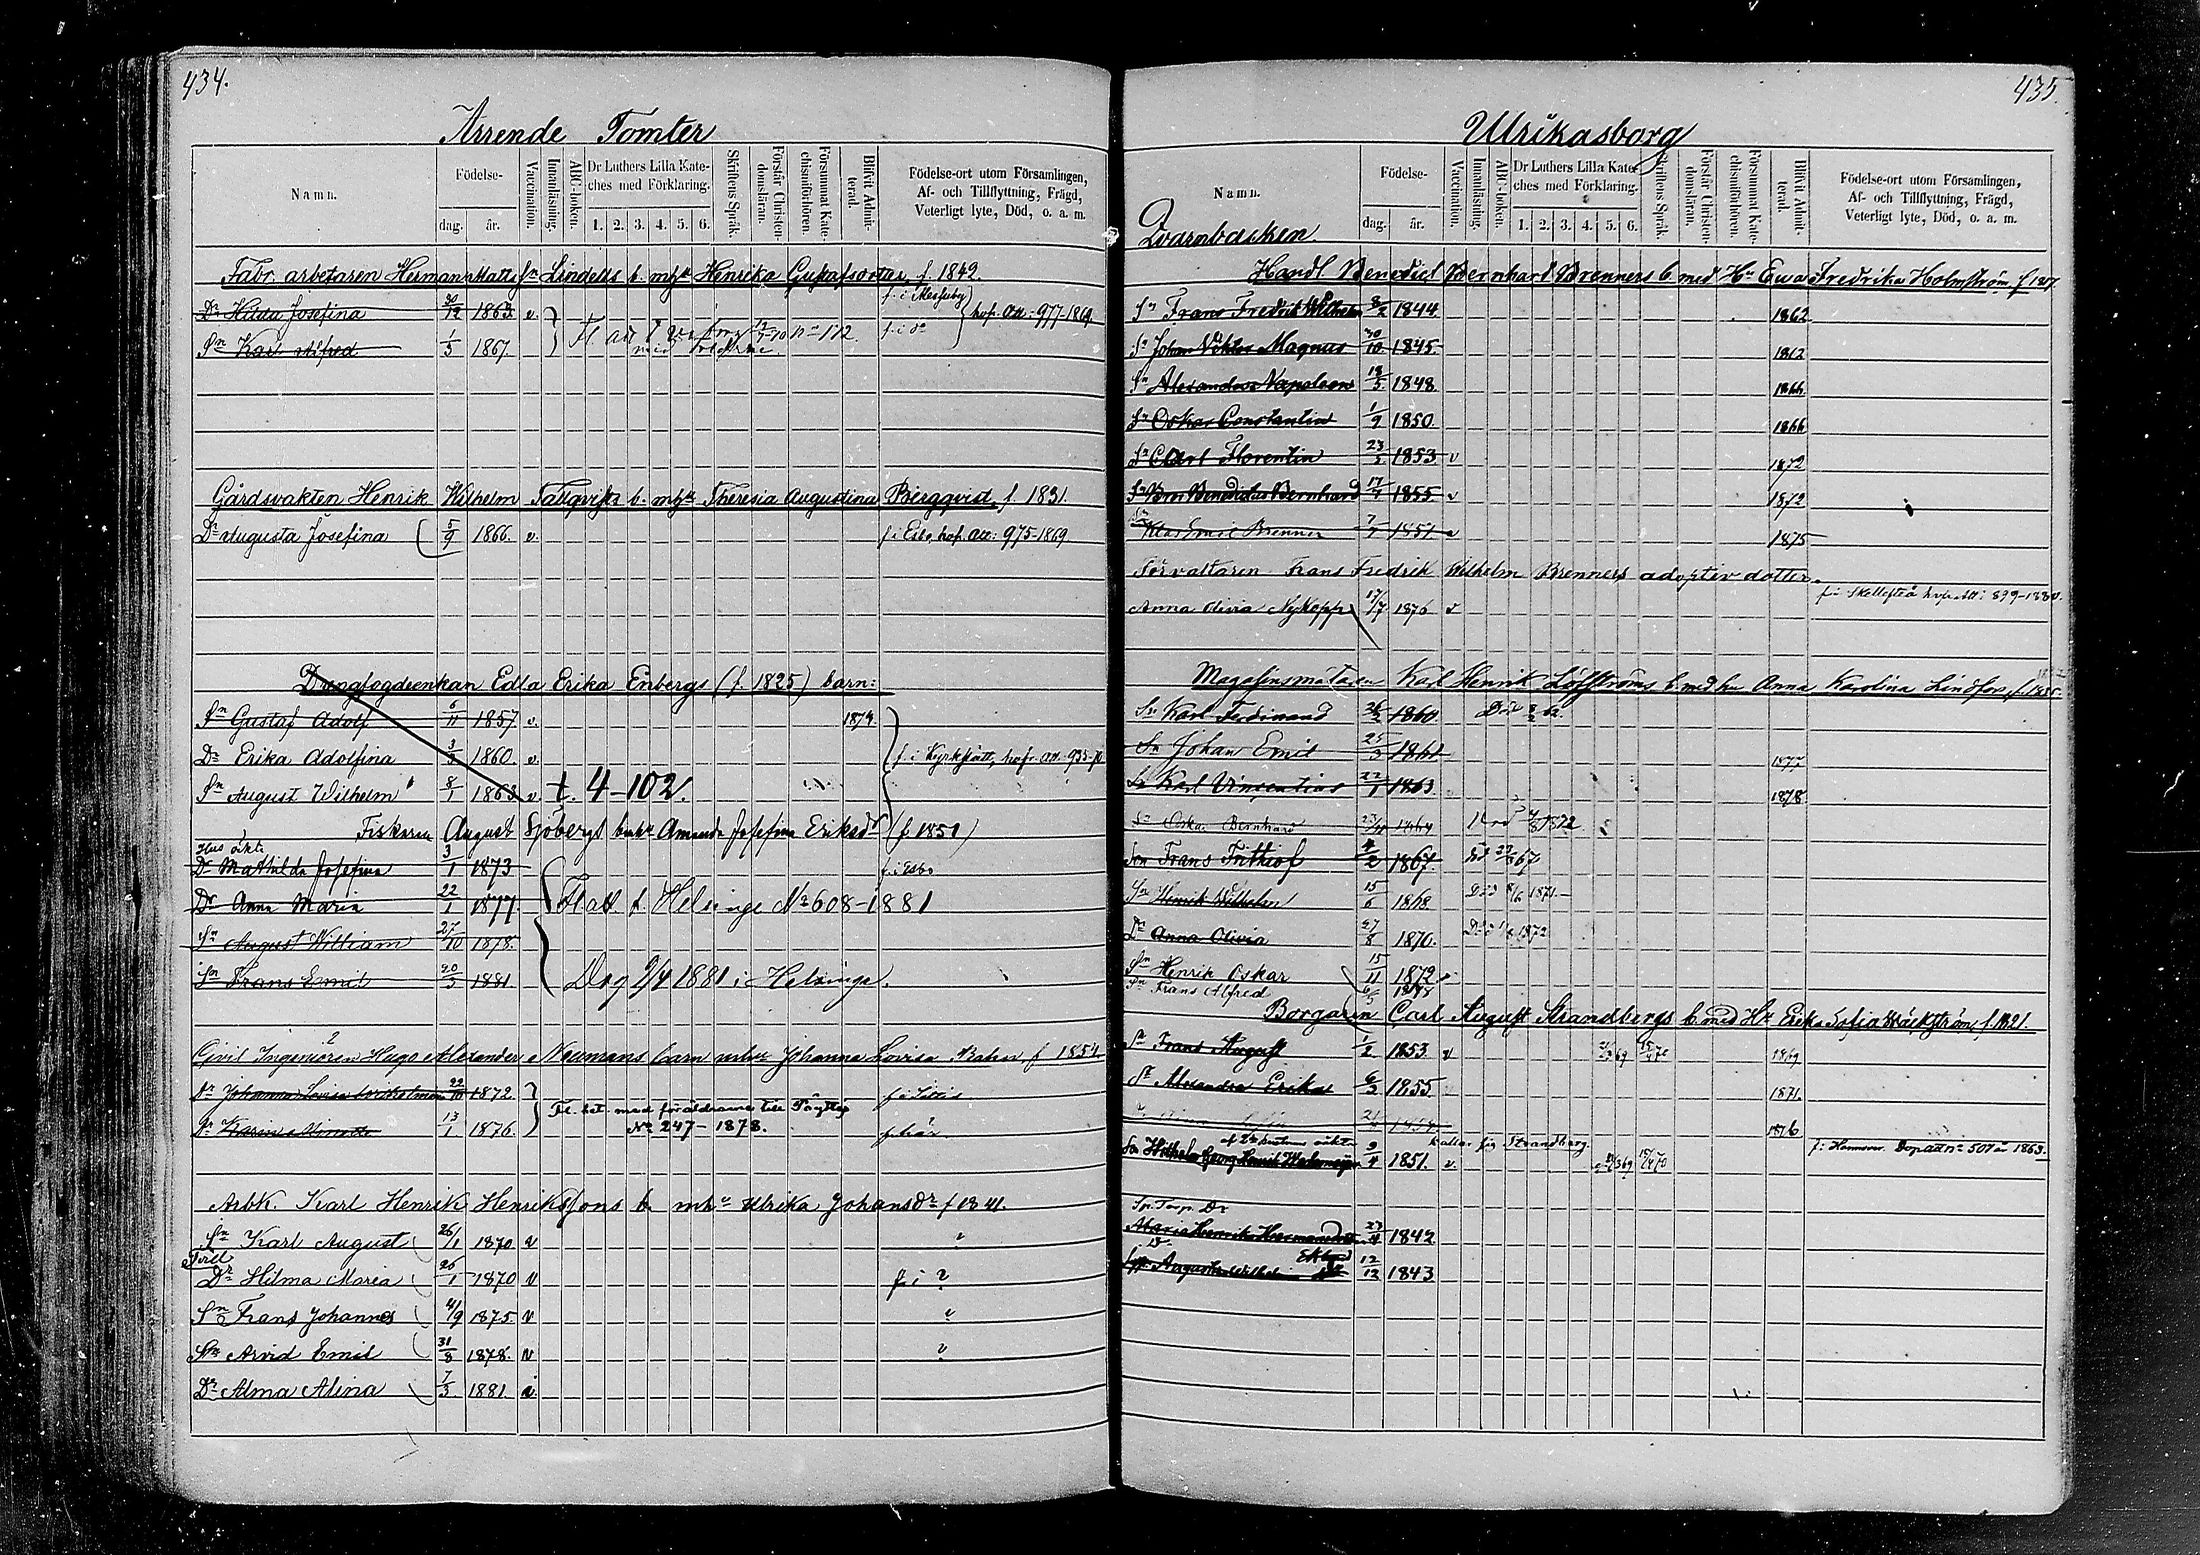 434.
Arrende Tomter
Namn.
Födelse-
dag. år.
Vaccination.
Innanläsning.
ABC-boken.
Dr Luthers Lilla Kate-
ches med Förklaring.
1. 2. 3. 4. 5. 6.
Skriftens Språk.
Förstår Christen-
domsläran.
Försummat Kate-
chismiförhören.
Blifvit Admit-
terad.
Födelse-ort utom Församlingen,
Af- och Tillflyttning, Frägd,
Veterligt lyte, Död, o. a. m.
Fabr. arbetaren Herman Matts Sn Lindells b. mhu Henrika Gustafsdotter f. 1842.
Dr Hilda Josefina 30/12 1863. v. f. i Messuby hofr. Att: 977-1869
Sn Karl Alfred 1/5 1867. f. i do
Gårdsvakten Henrik Wilhelm Tallqvists b. mhu Theresia Augustina Bergqvist f. 1831.
Dr Augusta Josefina 5/9 1866. v. f. i Esbo, hof. Att: 975-1869
Drengfogdeenkan Edla Erika Enbergs (f. 1825) barn:
Sn Gustaf Adolf 6/11 1857. v. 1874.
Dr Erika Adolfina 1860. v. f. i Kyrkslätt, hofr. Att. 935-70
Sn August Wilhelm 8/1 1863 v. t. 4-102.
Fiskaren August Sjöbergs b mhu Amanda Josefina Eriksdr (f. 1851)
Hus äkta
Dr Mathilda Josefina 3/1 1873 f. i Esbo
Dr Anna Maria 22/1 1877. Fl att f Helsinge No 608-1881
Sn August William 27/10 1878.
Sn Frans Emil 20/3 1881 Dog 9/4 1881 i Helsinge.
Civil Ingeniören Hugo Alexander Neumans barn mhu Johanna Lovisa f 1854
Dr Johanna Lovisa 22/10 1872.
Fl. bet. med föräldrarne till
No 247-1878.
Dr Karin 13/1 1876. f. här.
Arbk. Karl Henrik Henrikssons b. mhu Ulrika Johansdr f 1841.
Sn Karl August 26/1 1870 v
Tvill
Dr Hilma Maria 26/1 1870 v f. i ?
Sn Frans Johannes 4/9 1875. v
Sn Arvid Emil 31/8 1878. v ?
Dr Alma Alina 7/3 1881 v.
435.
Ulrikasborg
Namn.
Födelse-
dag. år.
Vaccination.
Innanläsning.
ABC-boken.
Dr Luthers Lilla Kate-
ches med Förklaring.
1. 2. 3. 4. 5. 6.
Skriftens Språk.
Förstår Christen-
domsläran.
Försummat Kate-
chismiförhören.
Blifvit Admit-
terad.
Födelse-ort utom Församlingen,
Af- och Tillflyttning, Frägd,
Veterligt lyte, Död, o. a. m.
Qvarnbacken.
Handl Benedict Bernhard Brenners b med Hu Ewa Fredrika Holmström f 1817
Sn Frans Fredrik Wilhelm 8/2 1844 1862
Sn Johan Viktor Magnus 30/10 1845. 1862
Sn Alexander Napoleon 18/5 1848 1866
Sn Oskar Constantin 1/9 1850 1866
Sn Carl Florentin 23/5 1853 v 1872
Sn Benedictus Bernhard 17/7 1855. v 1872
Klas Emil Brenner 7/7 1851 v 1875
Förvaltaren Frans Fredrik Wilhelm Brenners adoptiv dotter.
Anna Olivia Nykopp 17/7 1876 v f. i Skellefteå hofr. Att: 899-1880.
Magasinsmätaren Karl Henrik Löfströms b med hu Anna Karolina Lindfors
Sn Karl Ferdinand 1860
Sn Johan Emil 25/3 1861 1877
Sn Karl Vincentius 22/1 1863 1878
Sn Oskar Bernhard 1864
Son Frans Frithiof 4/2 1867.
Sn Henrik Wilhelm 15/6 1868 Död 1871.
Dr Anna Olivia 27/8 1870. 1872
Sn Henrik Oskar 15/11 1872
Sn Frans Alfred 6/5 1878
Borgaren Carl August Strandbergs b med Hu Erika Sofia Wäckström f. 1821.
Sn Frans August 1/2 1853. v 1869
Sn Alexander Erikas 6/3 1855 1871.
1876
kallar sig Strandberg.
Son Wilhelm Georg Henrik 9/4 1851. v. f. i Hannover. Dep att no 507 år 1863.
Maria Henrika Hermansdr 23/4 1842
August Wilhelm 12/12 1843